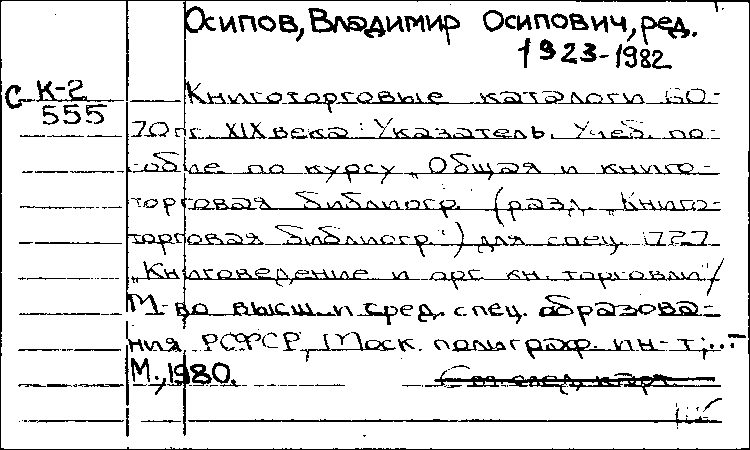 Осипов, Владимир Осипович, ред.
1923-1982
С К-2
555
Книготорговые каталоги 60-
70 гг. XIX века: Указатель. Учеб. по-
собие по курсу „Общая и книго-
торговая библиогр." (разд. „Книго-
торговая библиогр.") для спец. 1727
„Книговедение и орг. кн. торговли"/
М-во высш. и сред. спец. образова-
ния РСФСР, Моск. полиграф. ин-т;...-
М., 1980.
См. след. карт.